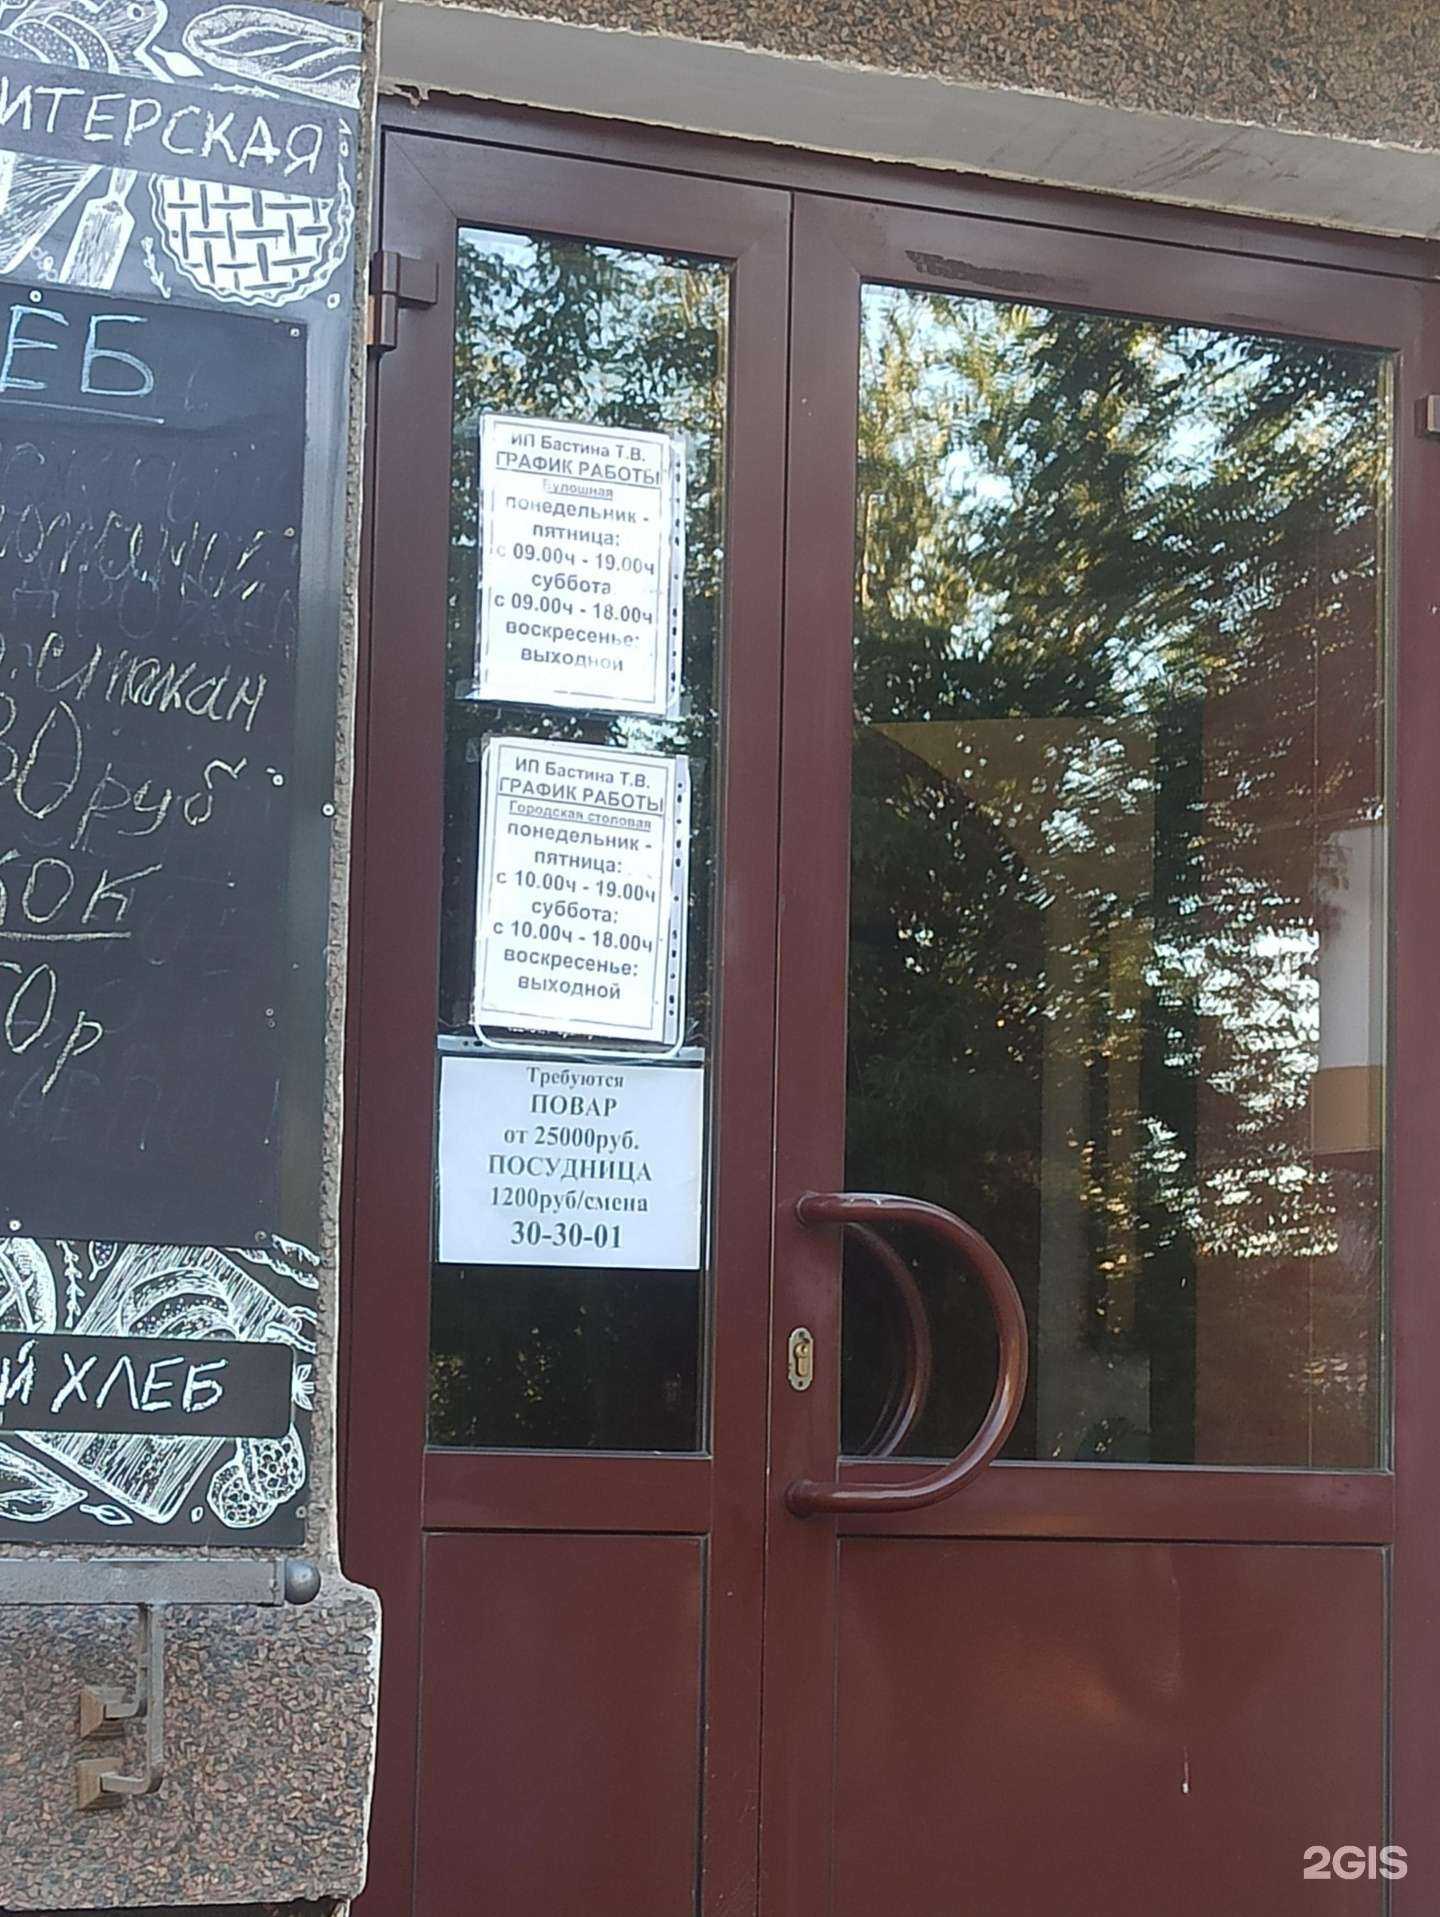 ИТЕРСКАЯ
ЕБ
стакан
30руб
0р
ЫЙ ХЛЕБ
ИП Бастина Т.В.
ГРАФИК РАБОТЫ
Булошная
понедельник -
пятница:
с 09.00ч - 19.00ч
суббота
с 09.00ч - 18.00ч
воскресенье:
выходной
ИП Бастина Т.В.
ГРАФИК РАБОТЫ
Городская столовая
понедельник -
пятница:
с 10.00ч - 19.00ч
суббота:
с 10.00ч - 18.00ч
воскресенье:
выходной
Требуются
ПОВАР
от 25000руб.
ПОСУДНИЦА
1200руб/смена
30-30-01
2GIS